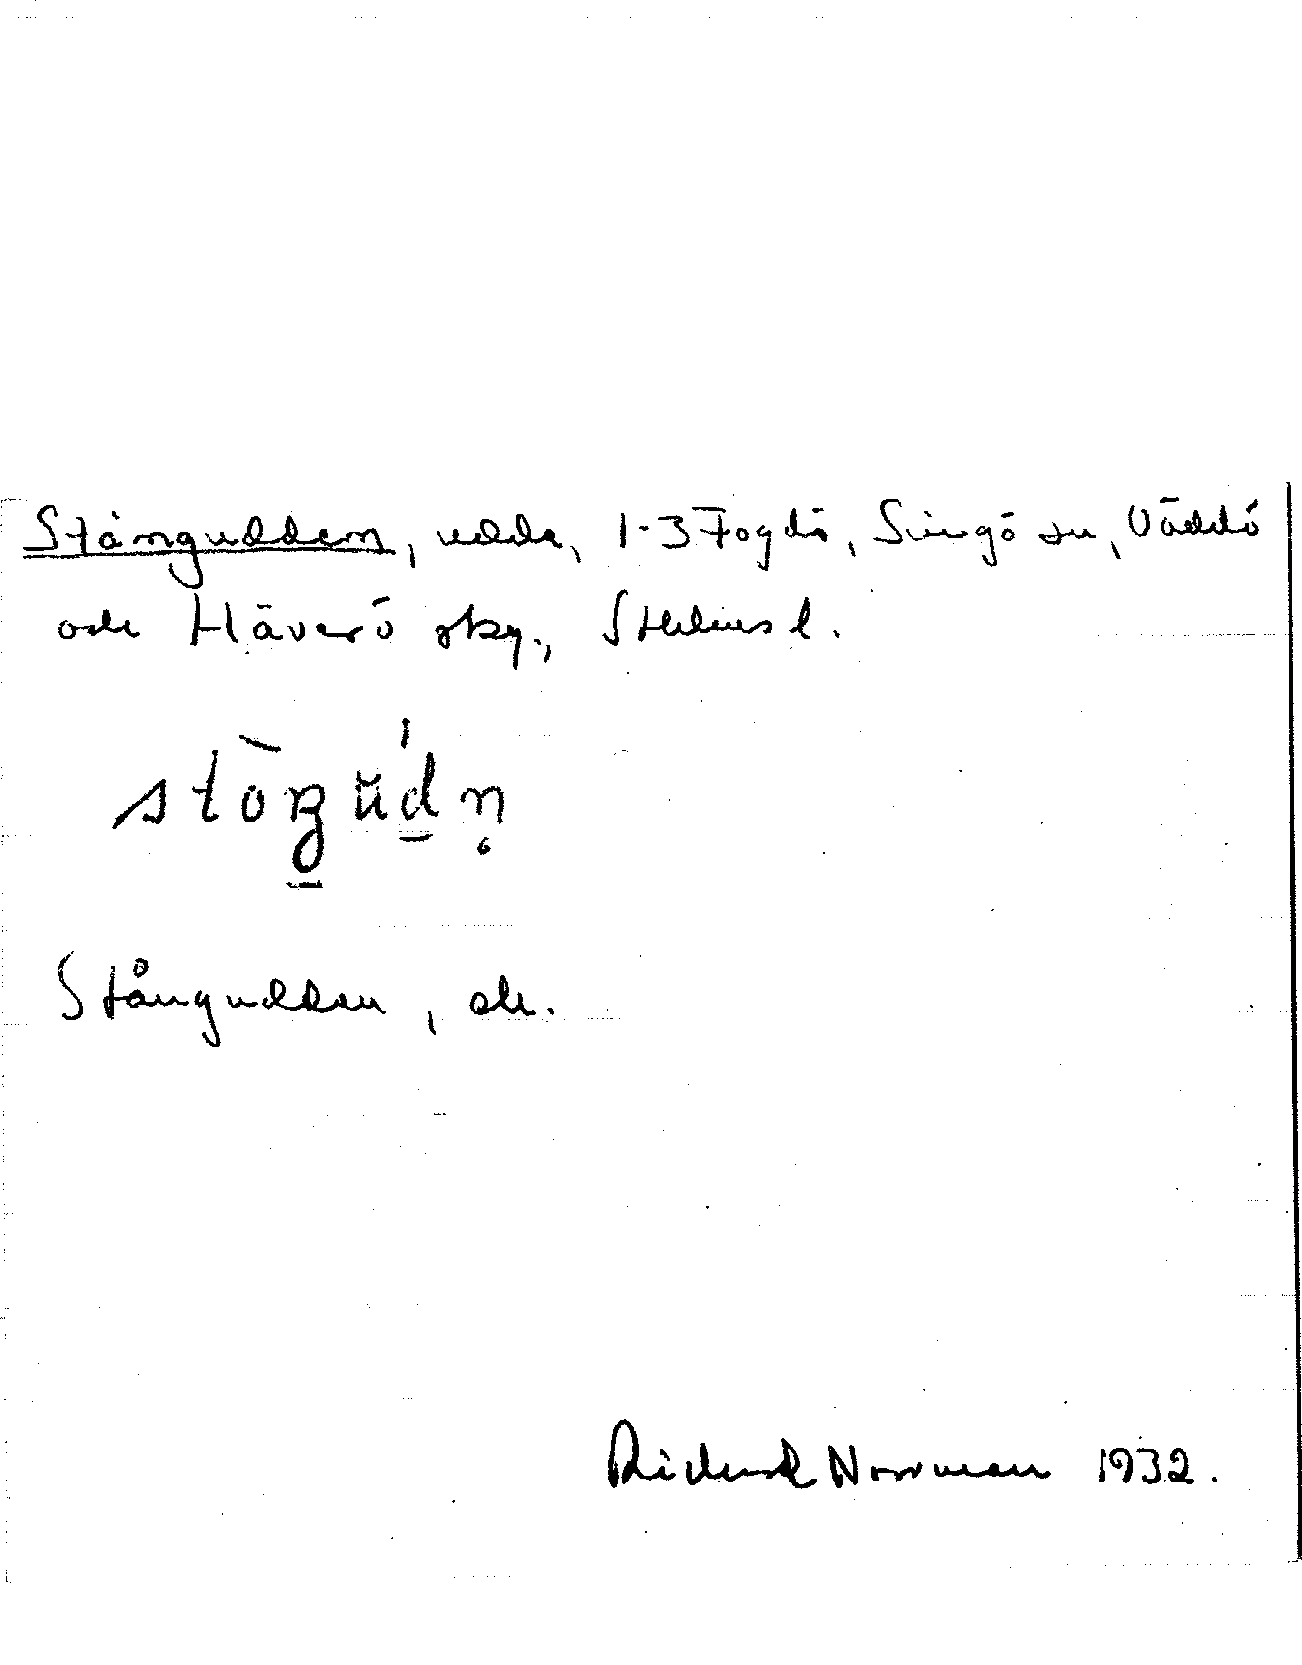 Stånguddem, udde, 1-3 Fogdö, Singö sn, Väddö
och Häverö skg., Sthlms l.
stòŋu̇́dn̥
Stångudden, ek.
Rickard Norrman 1932.